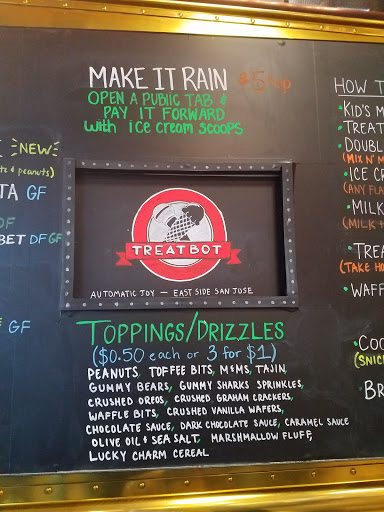 MAKE IT RAIN $5/up
OPEN A PUBLIC TAB &
PAY IT FORWARD
with ice cream scoops
NEW
& peanuts)
TA GF
DF
BET DF GF
GF
TREATBOT
AUTOMATIC JOY — EAST SIDE SAN JOSE
TOPPINGS/DRIZZLES
($0.50 each or 3 for $1)
PEANUTS, TOFFEE BITS, M&MS, TAJIN,
GUMMY BEARS, GUMMY SHARKS SPRINKLES,
CRUSHED OREOS, CRUSHED GRAHAM CRACKERS,
WAFFLE BITS, CRUSHED VANILLA WAFERS,
CHOCOLATE SAUCE, DARK CHOCOLATE SAUCE, CARAMEL SAUCE
OLIVE OIL & SEA SALT, MARSHMALLOW FLUFF,
LUCKY CHARM CEREAL
HOW T
•KID'S M
•TREAT
•DOUBL
(MIX N' M
•ICE CR
(ANY FLA
•MILK
(MILK +
•TREA
(TAKE HO
•WAFF
•COO
(SNIC
BR